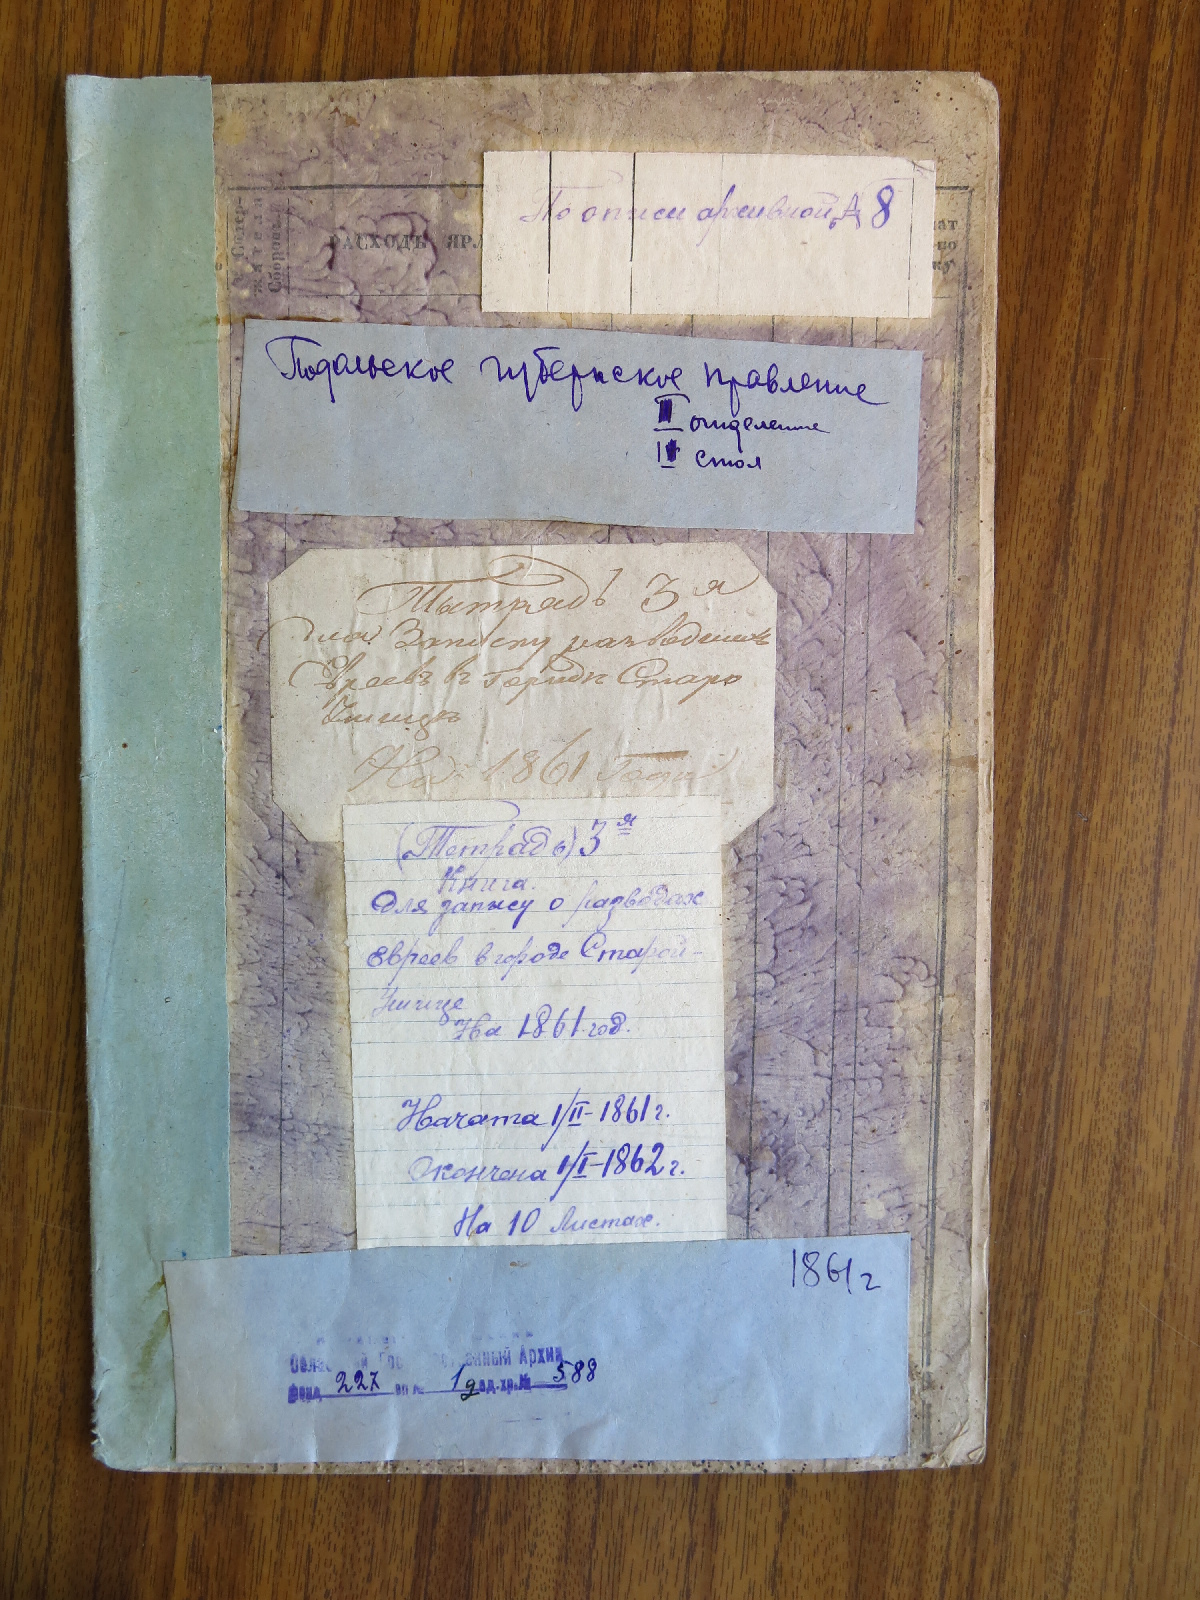 По описи архивной, Д 8
РАСХОДЪ ЯР
Подольское губернское правление
II отделение
II стол
Тытрадь 3я
для Записку разведенихъ
Евреевъ въ городѣ Старо
Ушицѣ
На 1861 Годъ
(Тетрадь) 3я
Книга.
Для запису о разводах
евреев в городе Старой-
Ушице
На 1861 год.
Начата 1/II-1861 г.
Окончена 1/I-1862 г.
На 10 Листах.
1861 г
Областной Государственный Архив
Фонд 227 оп № 1д ед.хр.№ 588